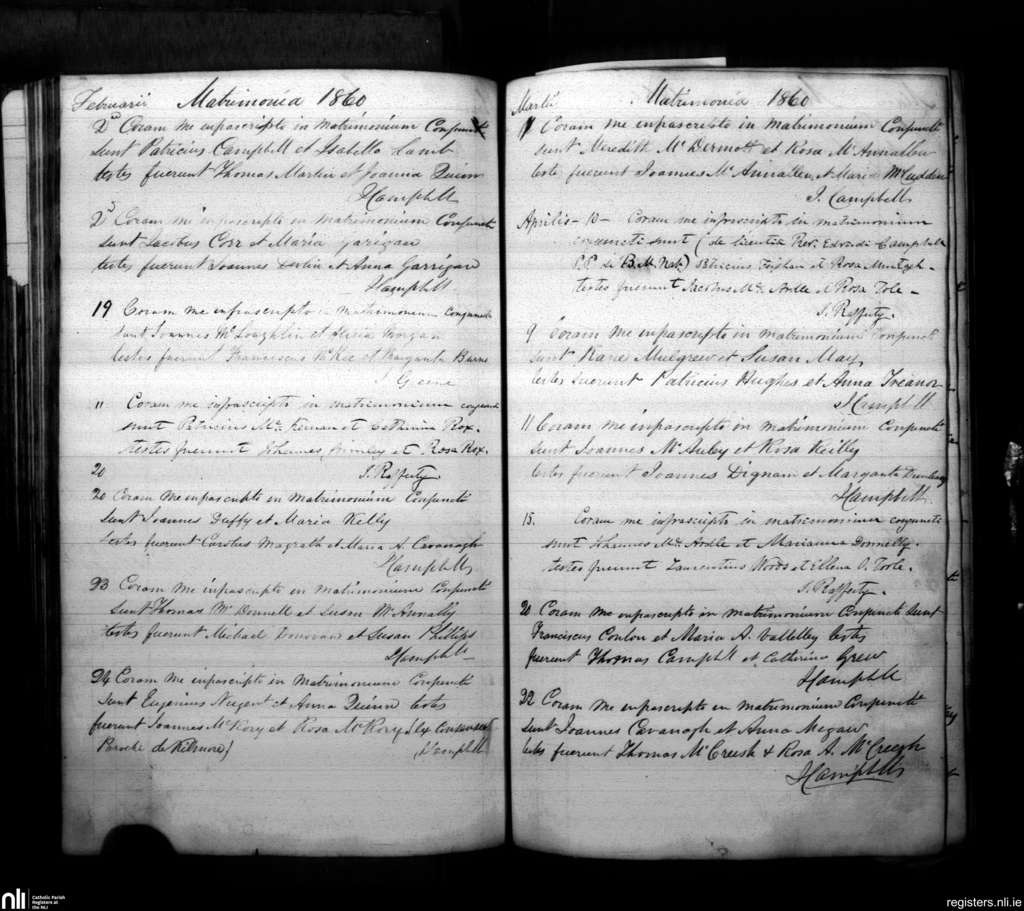 Februarii Matrimonia 1860
2º Coram me infrascripto in Matrimonium Conjuncti
sunt Patricius Campbell et Isabella Lamb
testes fuerunt Thomas Martin et Joanna Quinn
J Campbell
Coram me infrascripto in Matrimonium Conjuncti
sunt Jacobus Corr et Maria Garrigan
testes fuerunt Joannes Devlin et Anna Garrigan
J Campbell
19 Coram me infrascripto in matrimonium conjuncti
sunt Joannes McLoughlin et Morgan
testes fuerunt Franciscus McKee et Margarita Burne
11 Coram me infrascripto in matrimonium conjuncti
sunt Patricius Mc Kernan et Catharina Rox.
testes fuerunt Johannes et Rosa Rox.
20 J. Rafferty
20 Coram me infrascripto in Matrimonium Conjuncti
sunt Joannes Duffy et Maria Kelly
testes fuerunt Carolus Magrath et Maria A. Cavanagh
J Campbell
23 Coram me infrascripto in Matrimonium Conjuncti
sunt Thomas McDonnell et Susan McAnally
testes fuerunt Michael Donovan et Susan Phillips
J Campbell
24 Coram me infrascripto in Matrimonium Conjuncti
sunt Eugenius Nugent et Anna Quinn testes
fuerunt Joannes McRory et Rosa McRory (Ex Consensu
Parochi de Kilmore)
J Campbell
Martii Matrimonia 1860
11 Coram me infrascripto in matrimonium Conjuncti
sunt Meredith McDermott et Rosa McAnnallen
testes fuerunt Joannes McAnnallen et Maria McCudden
J. Campbell
Aprilis - 10 - Coram me infrascripto in matrimonium
conjuncti sunt (de licentia Rev. Edvardi Campbell
P.P. de B.M. Nat.) Patricius et Rosa Murtagh -
testes fuerunt Jacobus Mc Ardle et Rosa Tole -
J. Rafferty.
9 Coram me infrascripto in matrimonium Conjuncti
sunt Kane Mulgrew et Susan May
testes fuerunt Patricius Hughes et Anna Treanor
J Campbell
11 Coram me infrascripto in matrimonium Conjuncti
sunt Joannes McAuley et Rosa Reilly
testes fuerunt Joannes Dignam et Margarita
J Campbell
15. Coram me infrascripto in matrimonium conjuncti
sunt Johannes Mc Ardle et Marianna Donnelly.
testes fuerunt Laurentius Woods et Ellena O. Tole.
J. Rafferty.
20 Coram me infrascripto in matrimonium Conjuncti sunt
Franciscus Conlon et Maria A. Vallelley testes
fuerunt Thomas Campbell et Catherine Grew
J Campbell
22 Coram me infrascripto in matrimonium Conjuncti
sunt Joannes Cavanagh et Anna Megaw
testes fuerunt Thomas McCreesh & Rosa A. McCreesh
J Campbell
nli Catholic Parish
Registers at
the NLI
registers.nli.ie